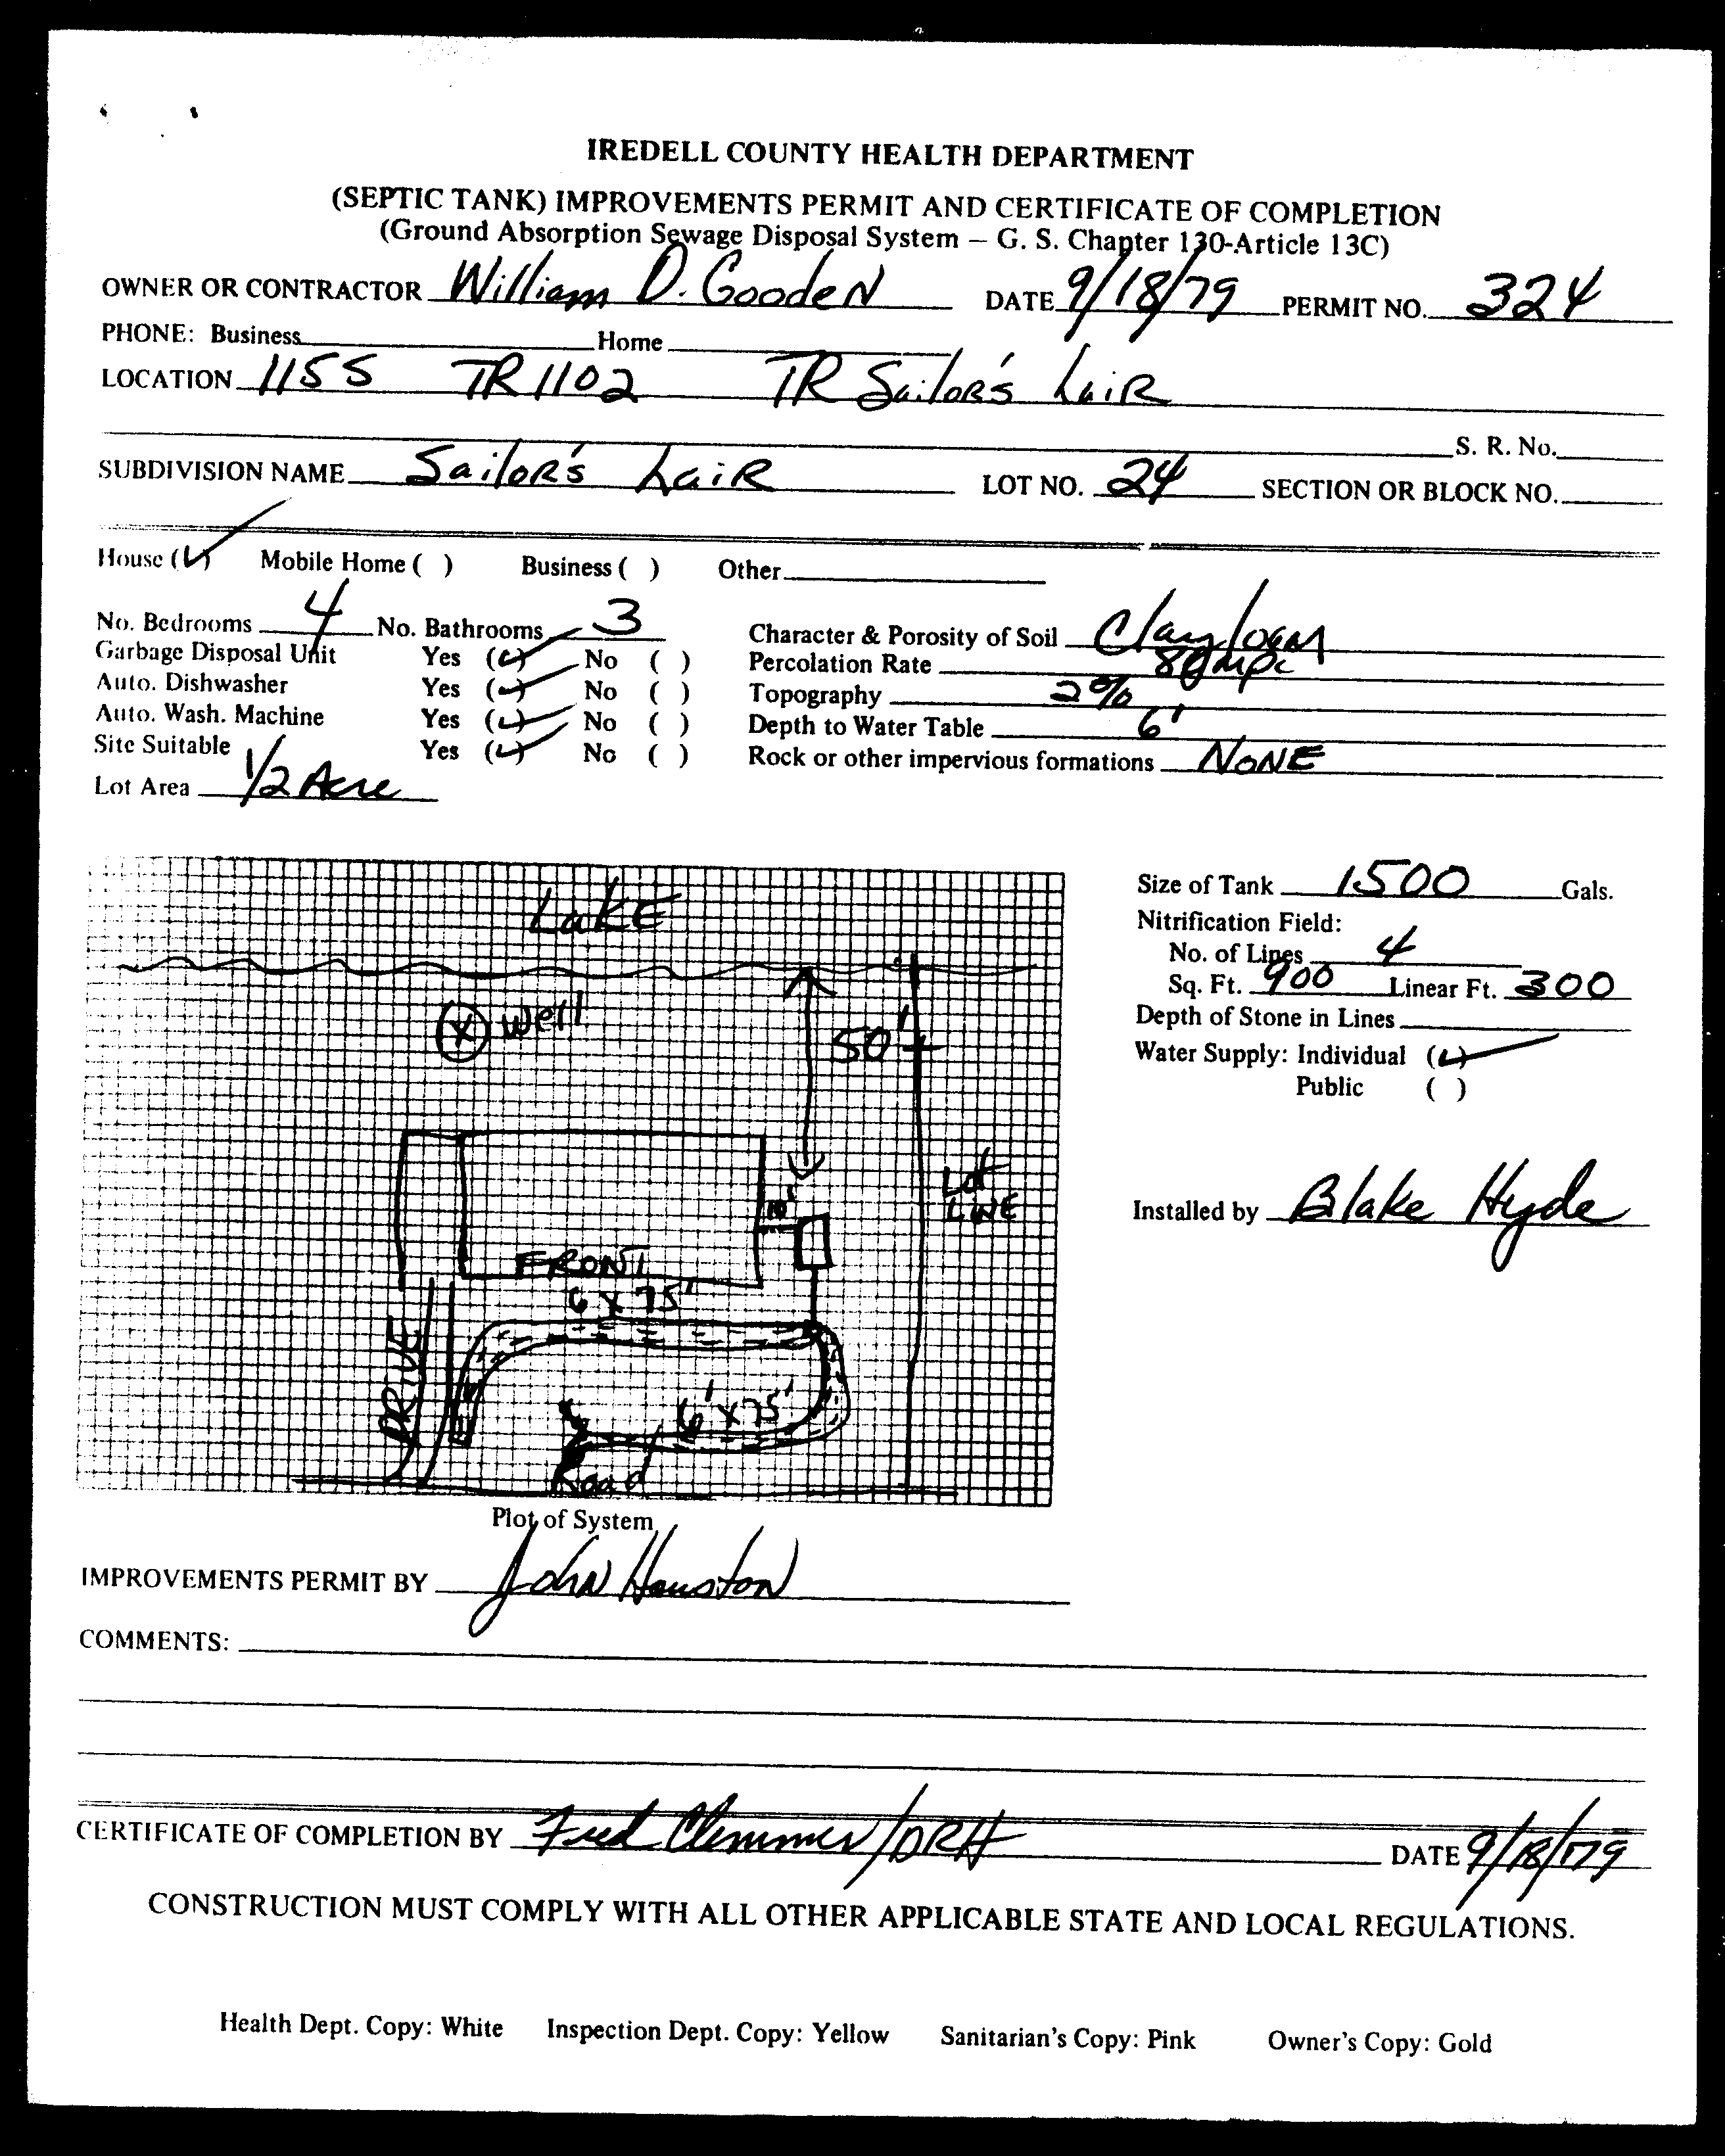 IREDELL COUNTY HEALTH DEPARTMENT
(SEPTIC TANK) IMPROVEMENTS PERMIT AND CERTIFICATE OF COMPLETION
(Ground Absorption Sewage Disposal System – G. S. Chapter 130-Article 13C)
OWNER OR CONTRACTOR William D. Gooden DATE 9/18/79 PERMIT NO. 324
PHONE: Business Home
LOCATION 1155 TR 1102 TR Sailor's Lair
S. R. No.
SUBDIVISION NAME Sailor's Lair LOT NO. 24 SECTION OR BLOCK NO.
House (✓) Mobile Home ( ) Business ( ) Other
No. Bedrooms 4 No. Bathrooms 3
Garbage Disposal Unit Yes (✓) No ( )
Auto. Dishwasher Yes (✓) No ( )
Auto. Wash. Machine Yes (✓) No ( )
Site Suitable Yes (✓) No ( )
Lot Area 1/2 Acre
Character & Porosity of Soil Clay loam
Percolation Rate 80 mpi
Topography 2%
Depth to Water Table 6'
Rock or other impervious formations NONE
Lake
Well
50'
Lot
LINE
10'
FRONT
6 X 75'
DRIVE
6' X 75'
Road
Plot of System
Size of Tank 1500 Gals.
Nitrification Field:
No. of Lines 4
Sq. Ft. 900 Linear Ft. 300
Depth of Stone in Lines
Water Supply: Individual (✓)
Public ( )
Installed by Blake Hyde
IMPROVEMENTS PERMIT BY John Houston
COMMENTS:
CERTIFICATE OF COMPLETION BY Fred Clemmer/DRH DATE 9/18/79
CONSTRUCTION MUST COMPLY WITH ALL OTHER APPLICABLE STATE AND LOCAL REGULATIONS.
Health Dept. Copy: White Inspection Dept. Copy: Yellow Sanitarian's Copy: Pink Owner's Copy: Gold